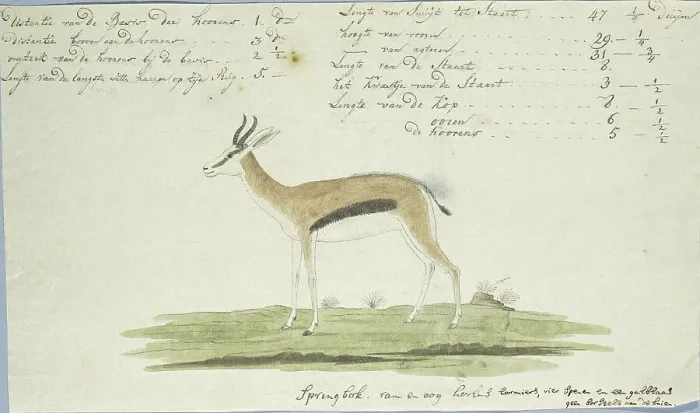 Distantie van de Basis der hoorens . 1. Dm
Distantie boven aan de hoorens . 3 Dm
omtrek van de hoorens bij de basis . 2 1/2
Lengte van de langste witte haairen op zije Rug . 5. —
Lengte van Snuijt tot Staart . 47 1/4 Duijm
hoogte van vooren . 29 - 1/4
— van agteren . 31 - 3/4
Lengte van de Staart . 8.
het Kwastje van de Staart . 3 - 1/2
Lengte van de Kop . 8 - 1/2
ooren . 6 - 1/2
de hoorens . 5 - 1/2
Springbok. ram en ooy horens larmiers, vier Spenen en een galblaas
geen borstels aan de knien.